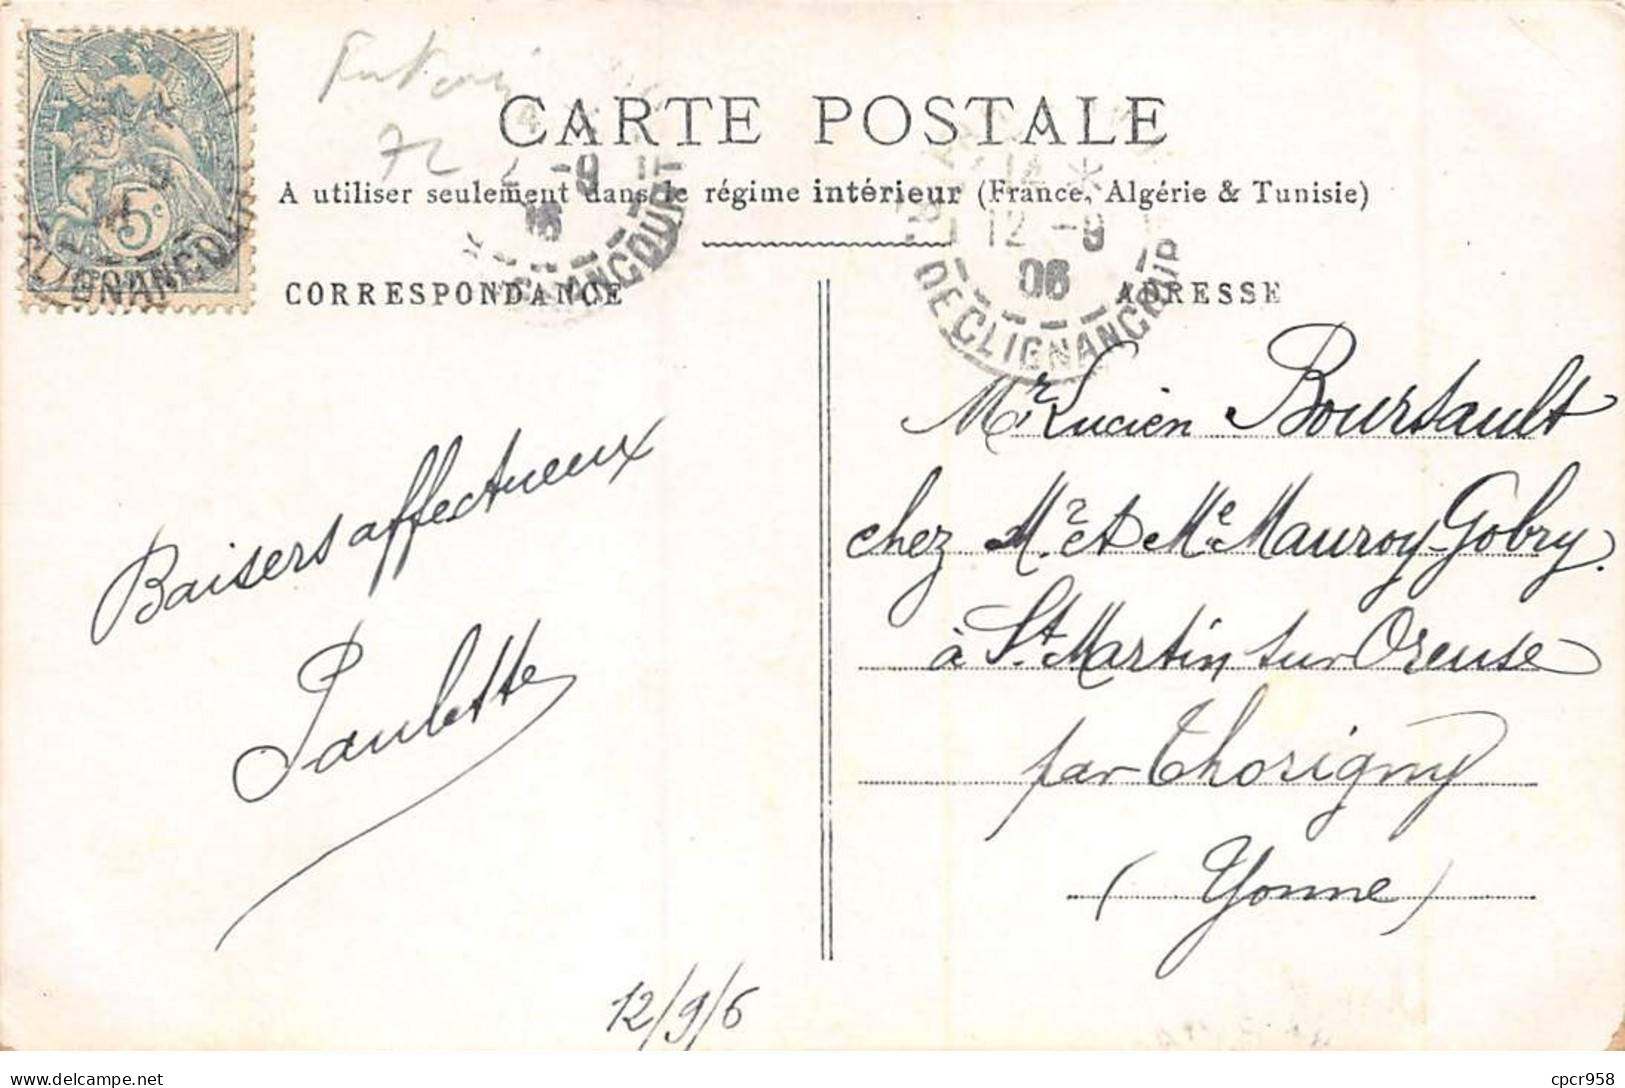 72
CARTE POSTALE
A utiliser seulement dans le régime intérieur (France, Algérie & Tunisie)
5c
CLIGNANCOURT
2 -9
06
14 *
12 -9
06
DE CLIGNANCOUR
CORRESPONDANCE
ADRESSE
Baisers affectueux
Paulette
12/9/6
Mr Lucien Boursault
chez Mr. et Me Mauroy-Gobry.
à St. Martin sur Oreuse
par Thorigny
(Yonne)
Delcampe.net
cpcr958